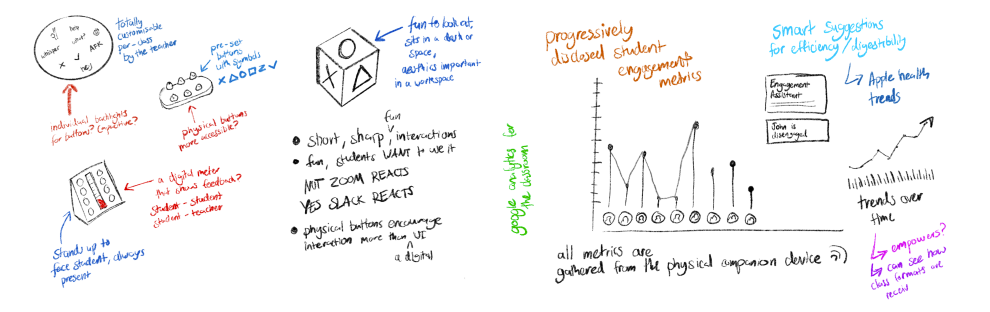 hey
whisper
what?
AFK
hey
totally
customisable
per-class
by the teacher
pre-set
buttons
with symbols
individual backlights
for buttons? Capacitive?
physical buttons
more accessible?
a digital meter
that shows feedback?
student - student
student - teacher
Stands up to
face student, always
present
fun to look at,
sits in a desk or
space,
aesthetics important
in a workspace
X
fun
short, sharp, interactions
fun, students WANT to use it
NOT ZOOM REACTS
YES SLACK REACTS
physical buttons encourage
interaction more than UI
a digital
google analytics for
the classroom
progressively
disclosed student
engagement
metrics
all metrics are
gathered from the physical companion device
Smart Suggestions
for efficiency/digestibility
Engagement
Assistant
John is
disengaged
Apple health
trends
trends over
time
empowers?
can see how
class formats are